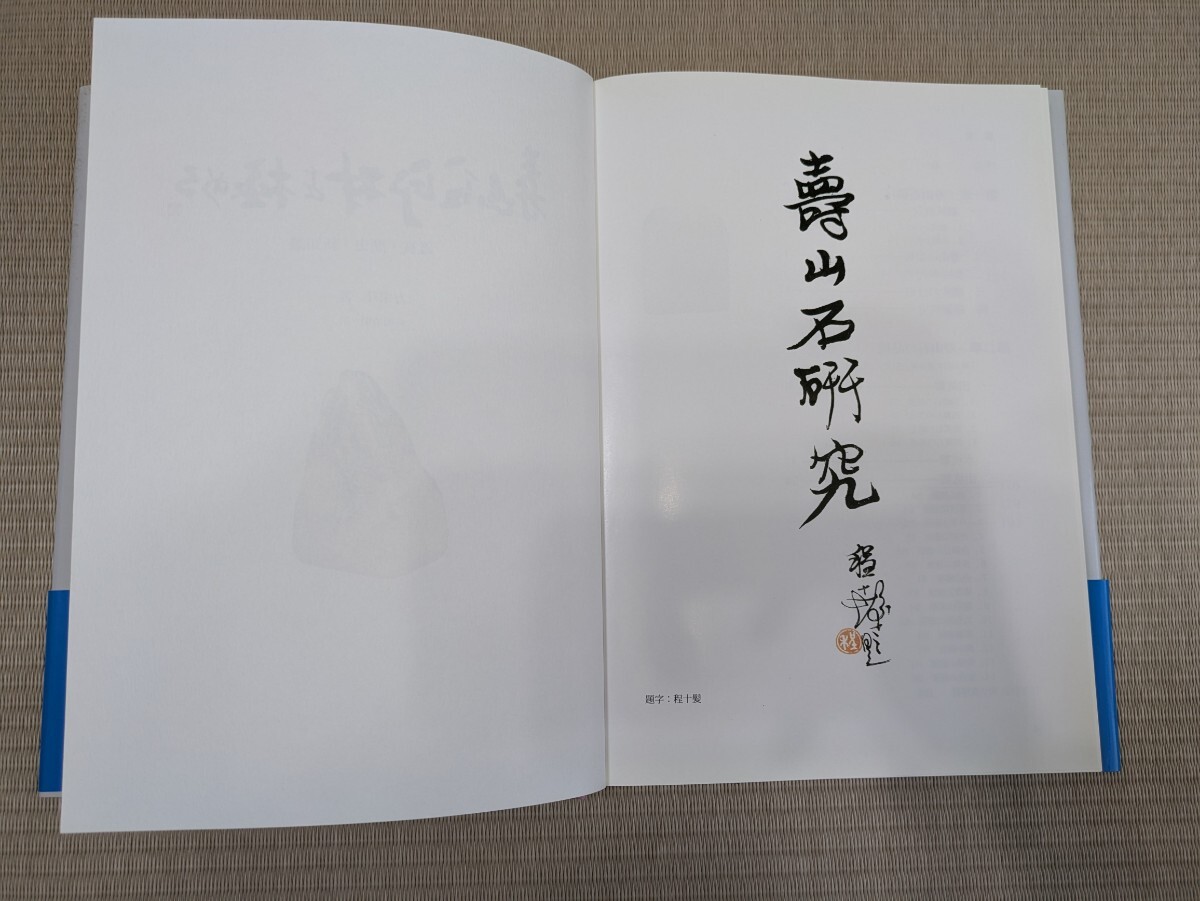 壽山石研究
程十髪題
題字：程十髪